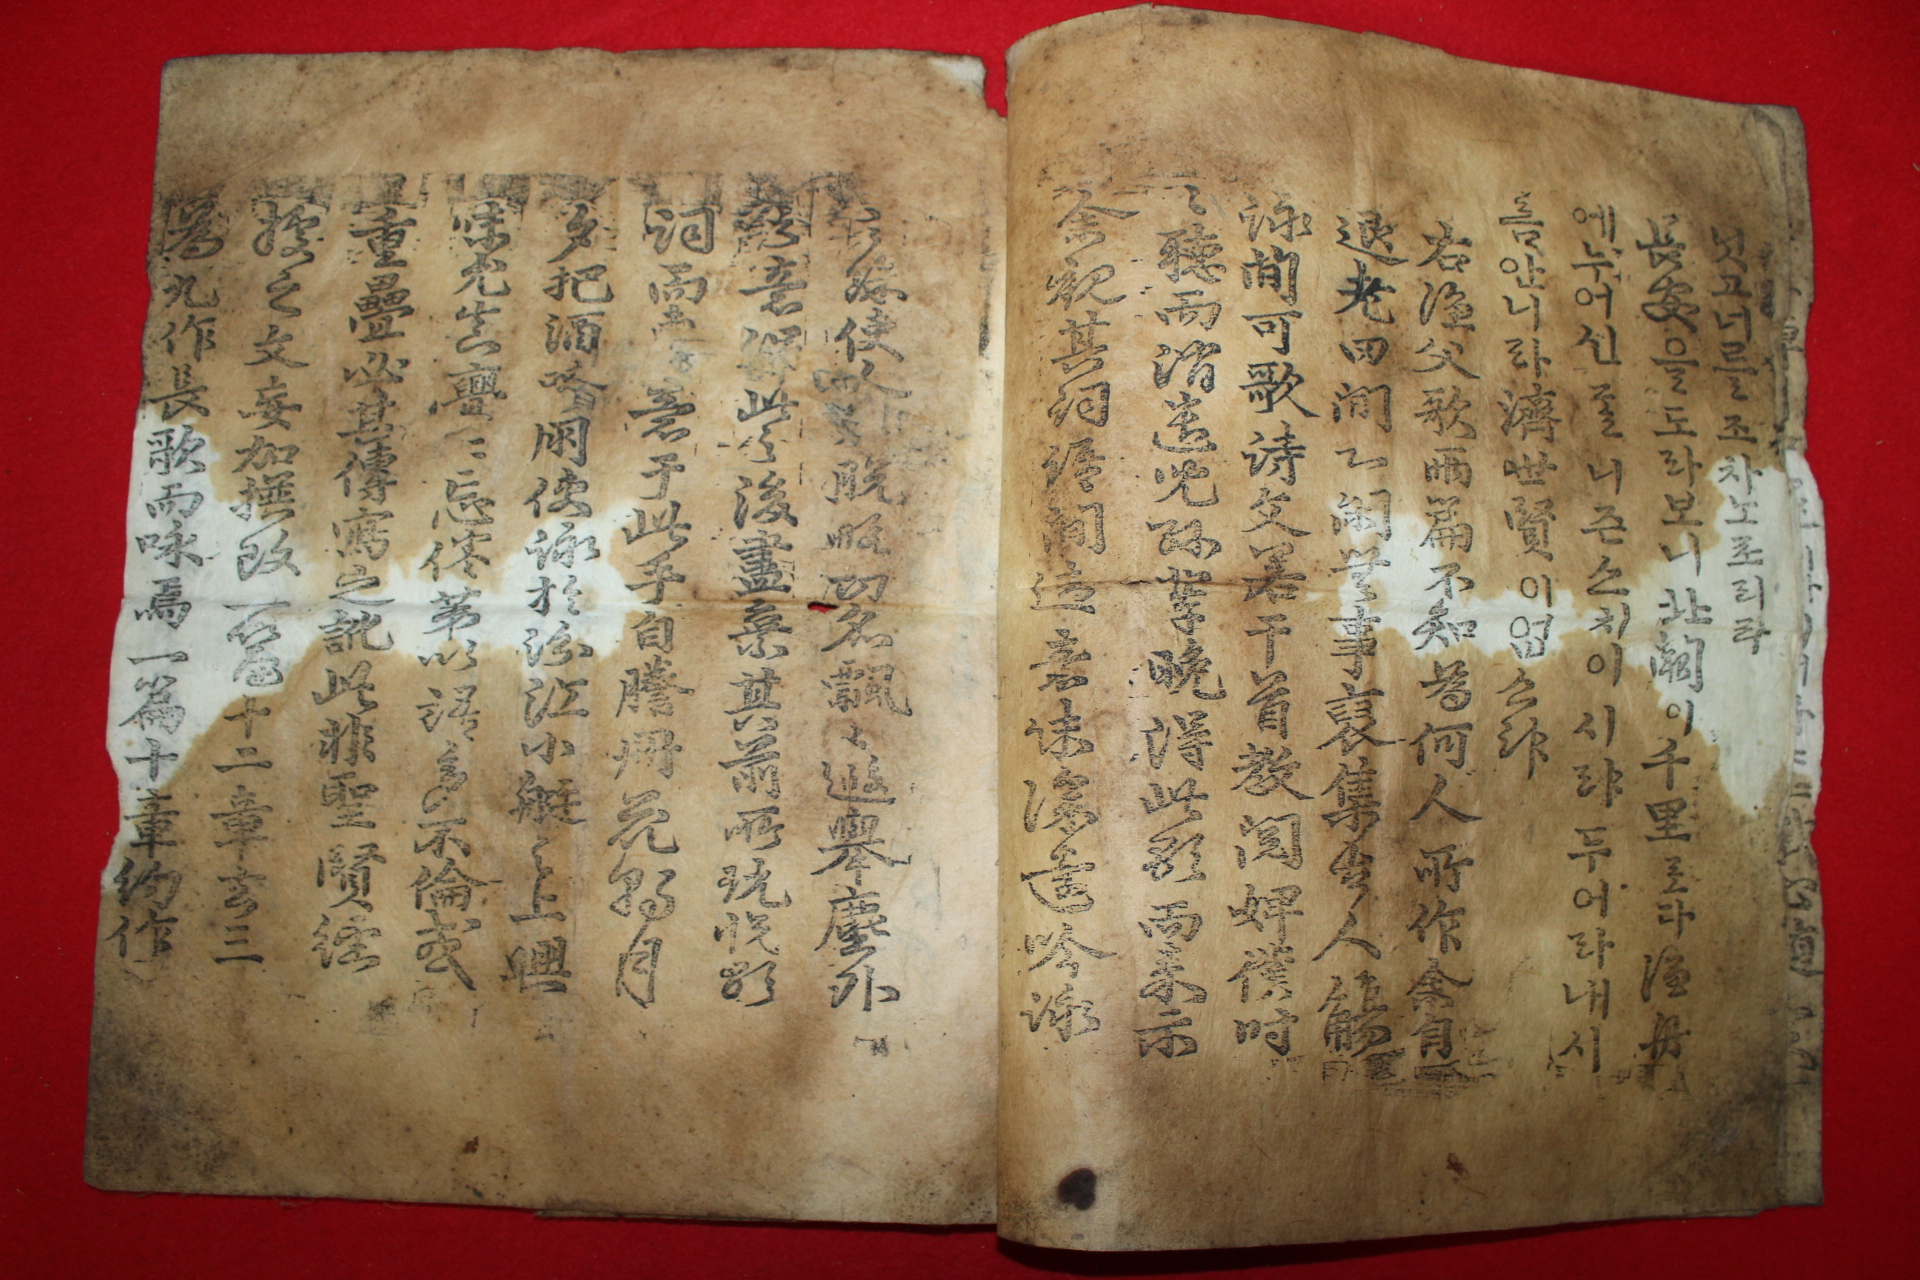 닛고너를조차노로리라
長安을도라보니北闕이千里로다漁舟
에누어신들니즌스치이시랴두어라내시
름안니라濟世賢이업스랴
右漁父歌兩篇不知爲何人所作余自
退老田間心閒無事裒集古人觴
詠間可歌詩文若干首教閱婢僕時
〻聽而消遣兒孫輩晚得此歌而來示
余観其詞語閒適意味深遠吟詠
之餘使人有脫略功名飄〻遐舉塵外
之意得此之後盡棄其前所玩悅歌
詞而專意于此手自謄冊花朝月
夕把酒呼朋使詠於汾江小艇之上興
味尤真亹〻忘倦第以語多不倫或
重疊必其傳寫之訛此非聖賢經
據之文妄加撰改一篇十二章去三
爲九作長歌而咏焉一篇十章約作